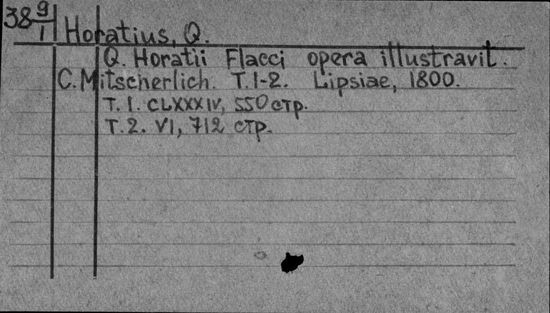 38 9/1
Horatius, Q.
Q. Horatii Flacci opera illustravit.
C. Mitscherlich. T. 1-2. Lipsiae, 1800.
T. 1. CLXXXIV, 550 стр.
T. 2. VI, 712 стр.